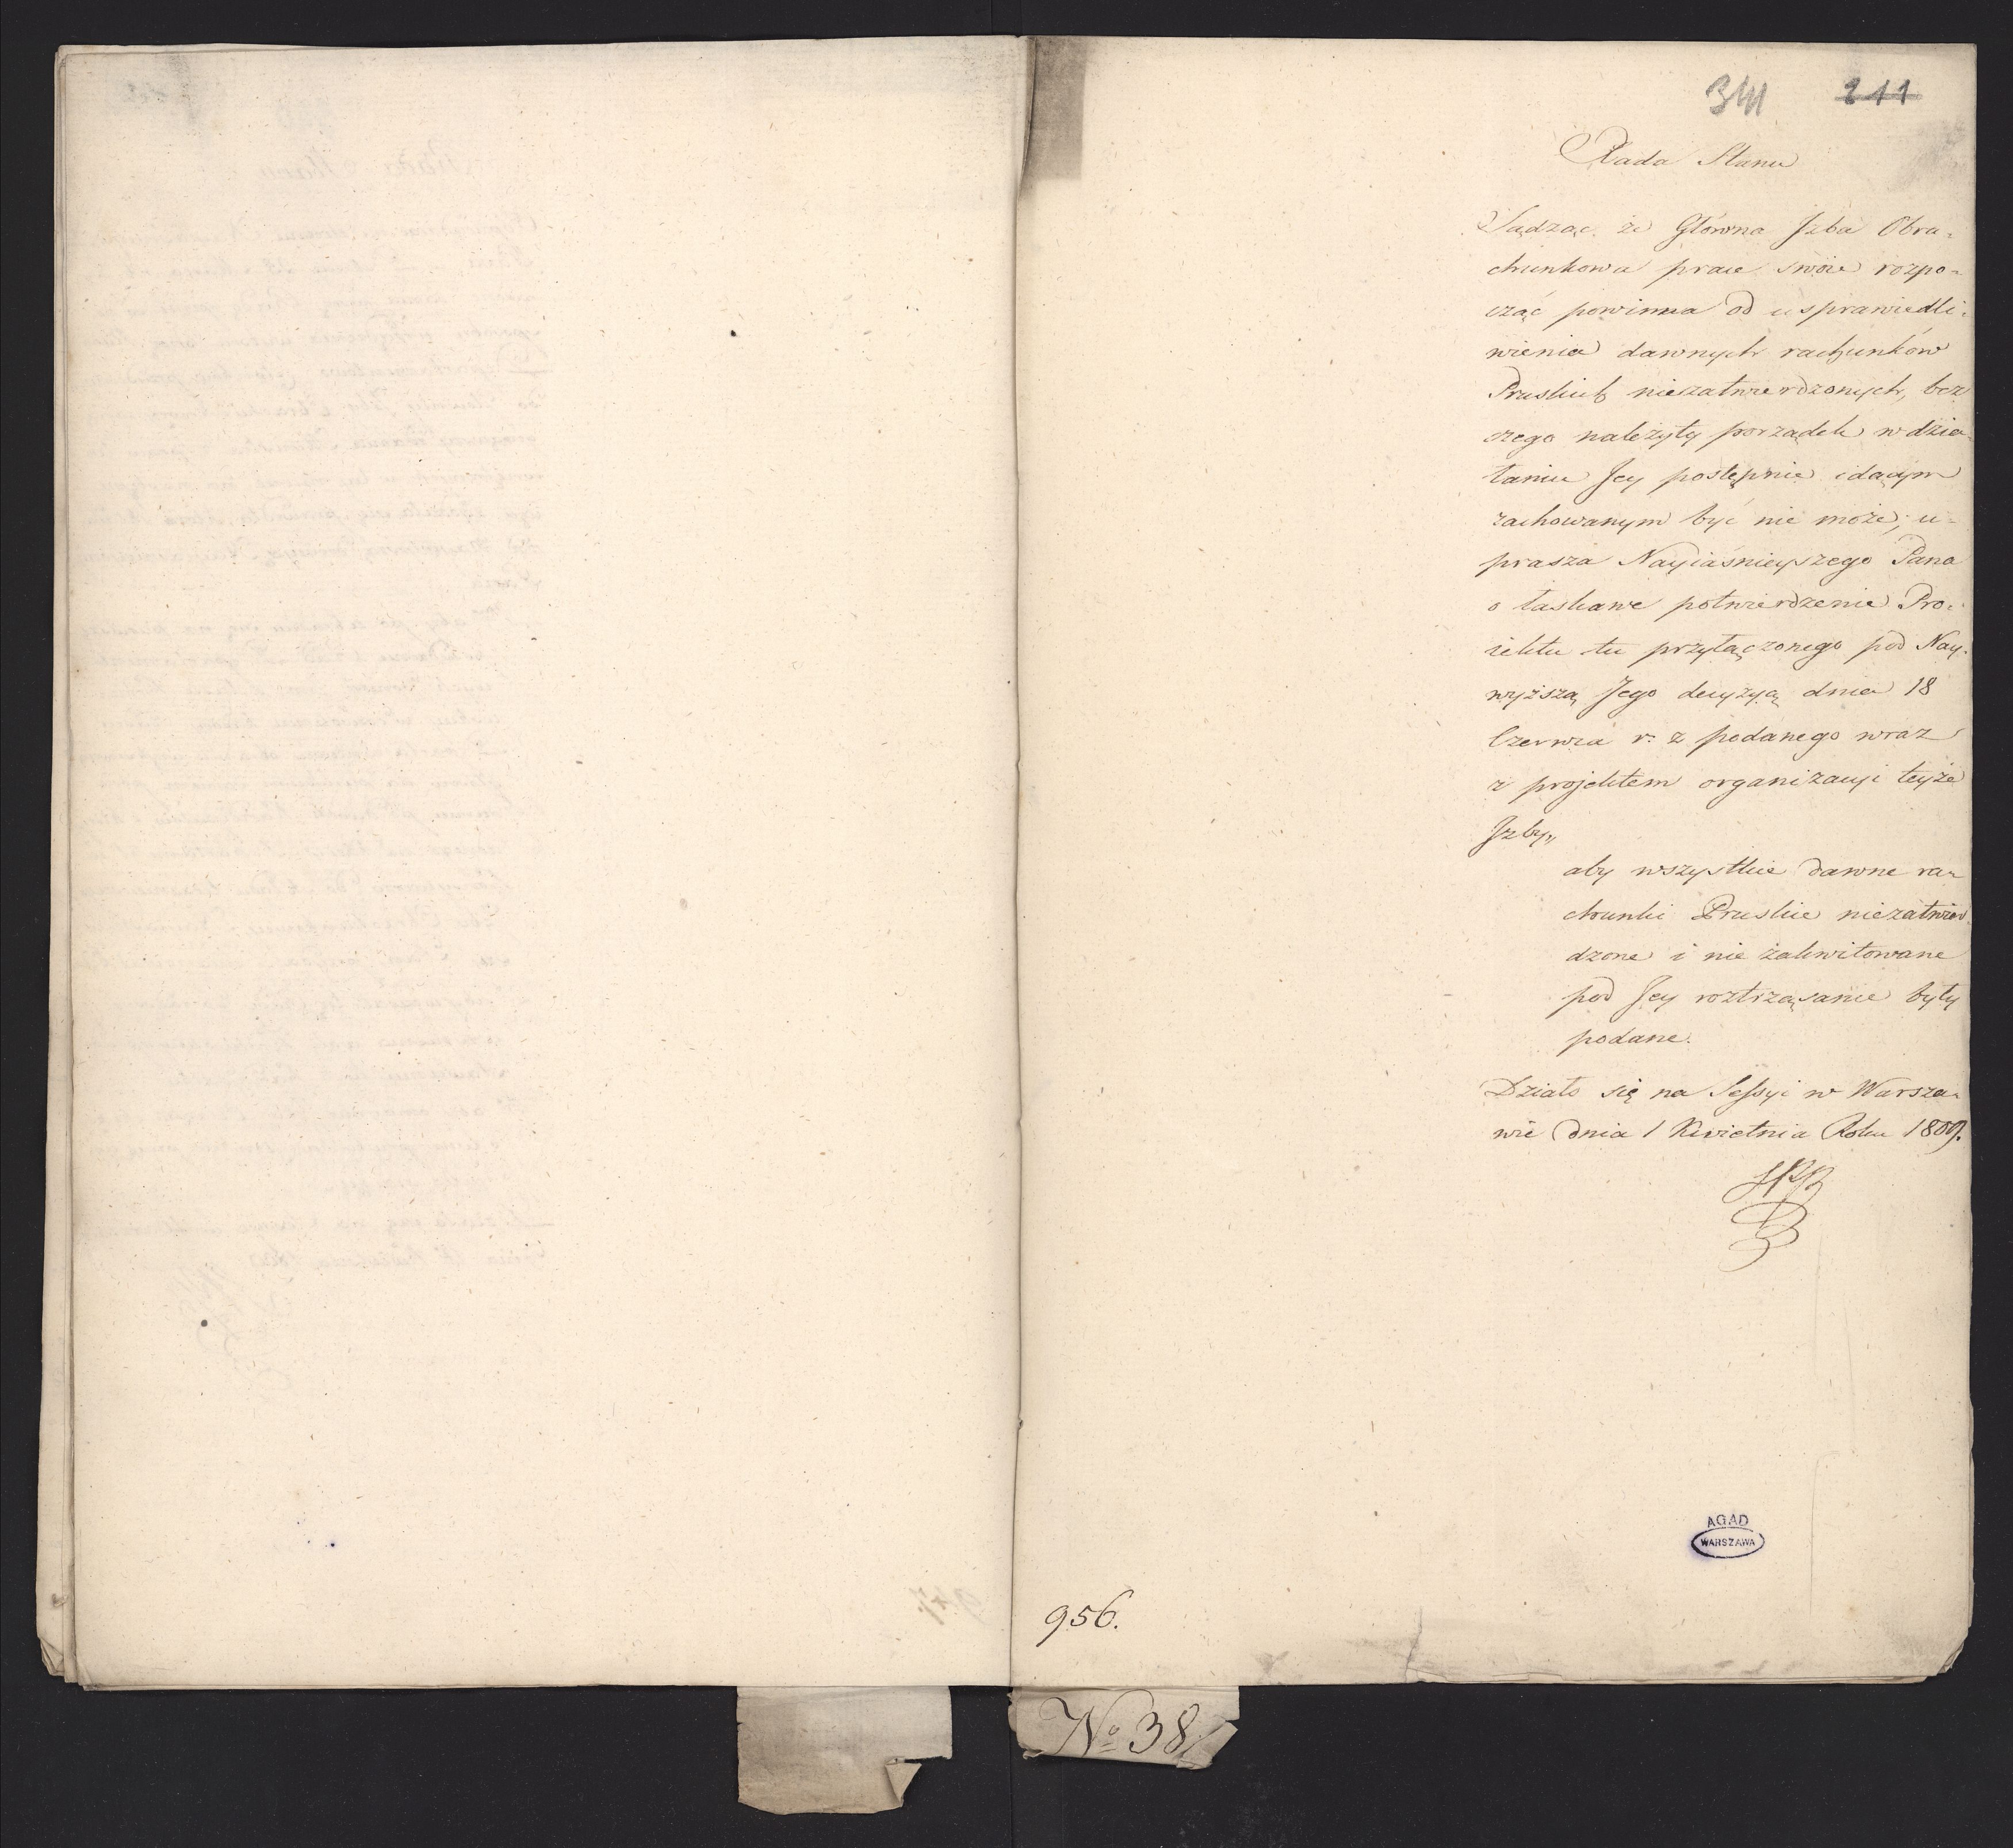 341 211
Rada Stanu
Sądząc że Główna Jzba Obra-
chunkowa prace swoie rozpo-
cząć powinna od usprawiedli-
wienia dawnych rachunków
Pruskich niezatwierdzonych, bez
czego należyty porządek w dzia-
łaniu Jey postępnie idącym
zachowanym być nie może; u-
prasza Nayiaśnieyszego Pana
o łaskawe potwierdzenie Pro-
iektu tu przyłączonego pod Nay-
wyższą Jego decyzyą dnia 18
Czerwca r. z podanego wraz
z projektem organizacyi teyże
Jzby,
aby wszystkie dawne ra-
chunki Pruskie niezatwier-
dzone i nie zakwitowane
pod Jey roztrząsanie były
podane.
Działo się na Sessyi w Warsza-
wie dnia 1 Kwietnia Roku 1809.
AGAD
WARSZAWA
956.
No 38